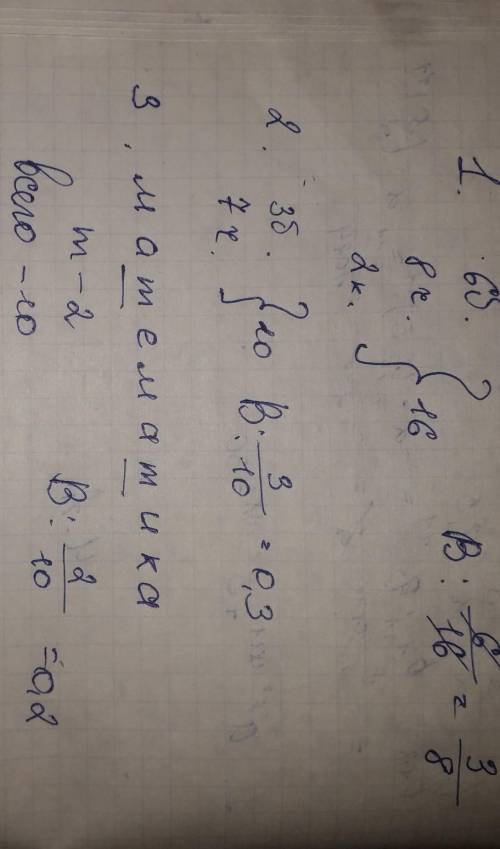 1. 6б.
8ч. } 16 В: 6/16 = 3/8
2к.
2. 3б.
7ч. } 10 В: 3/10 = 0,3
3. математика
т - 2
всего - 10 В: 2/10 = 0,2